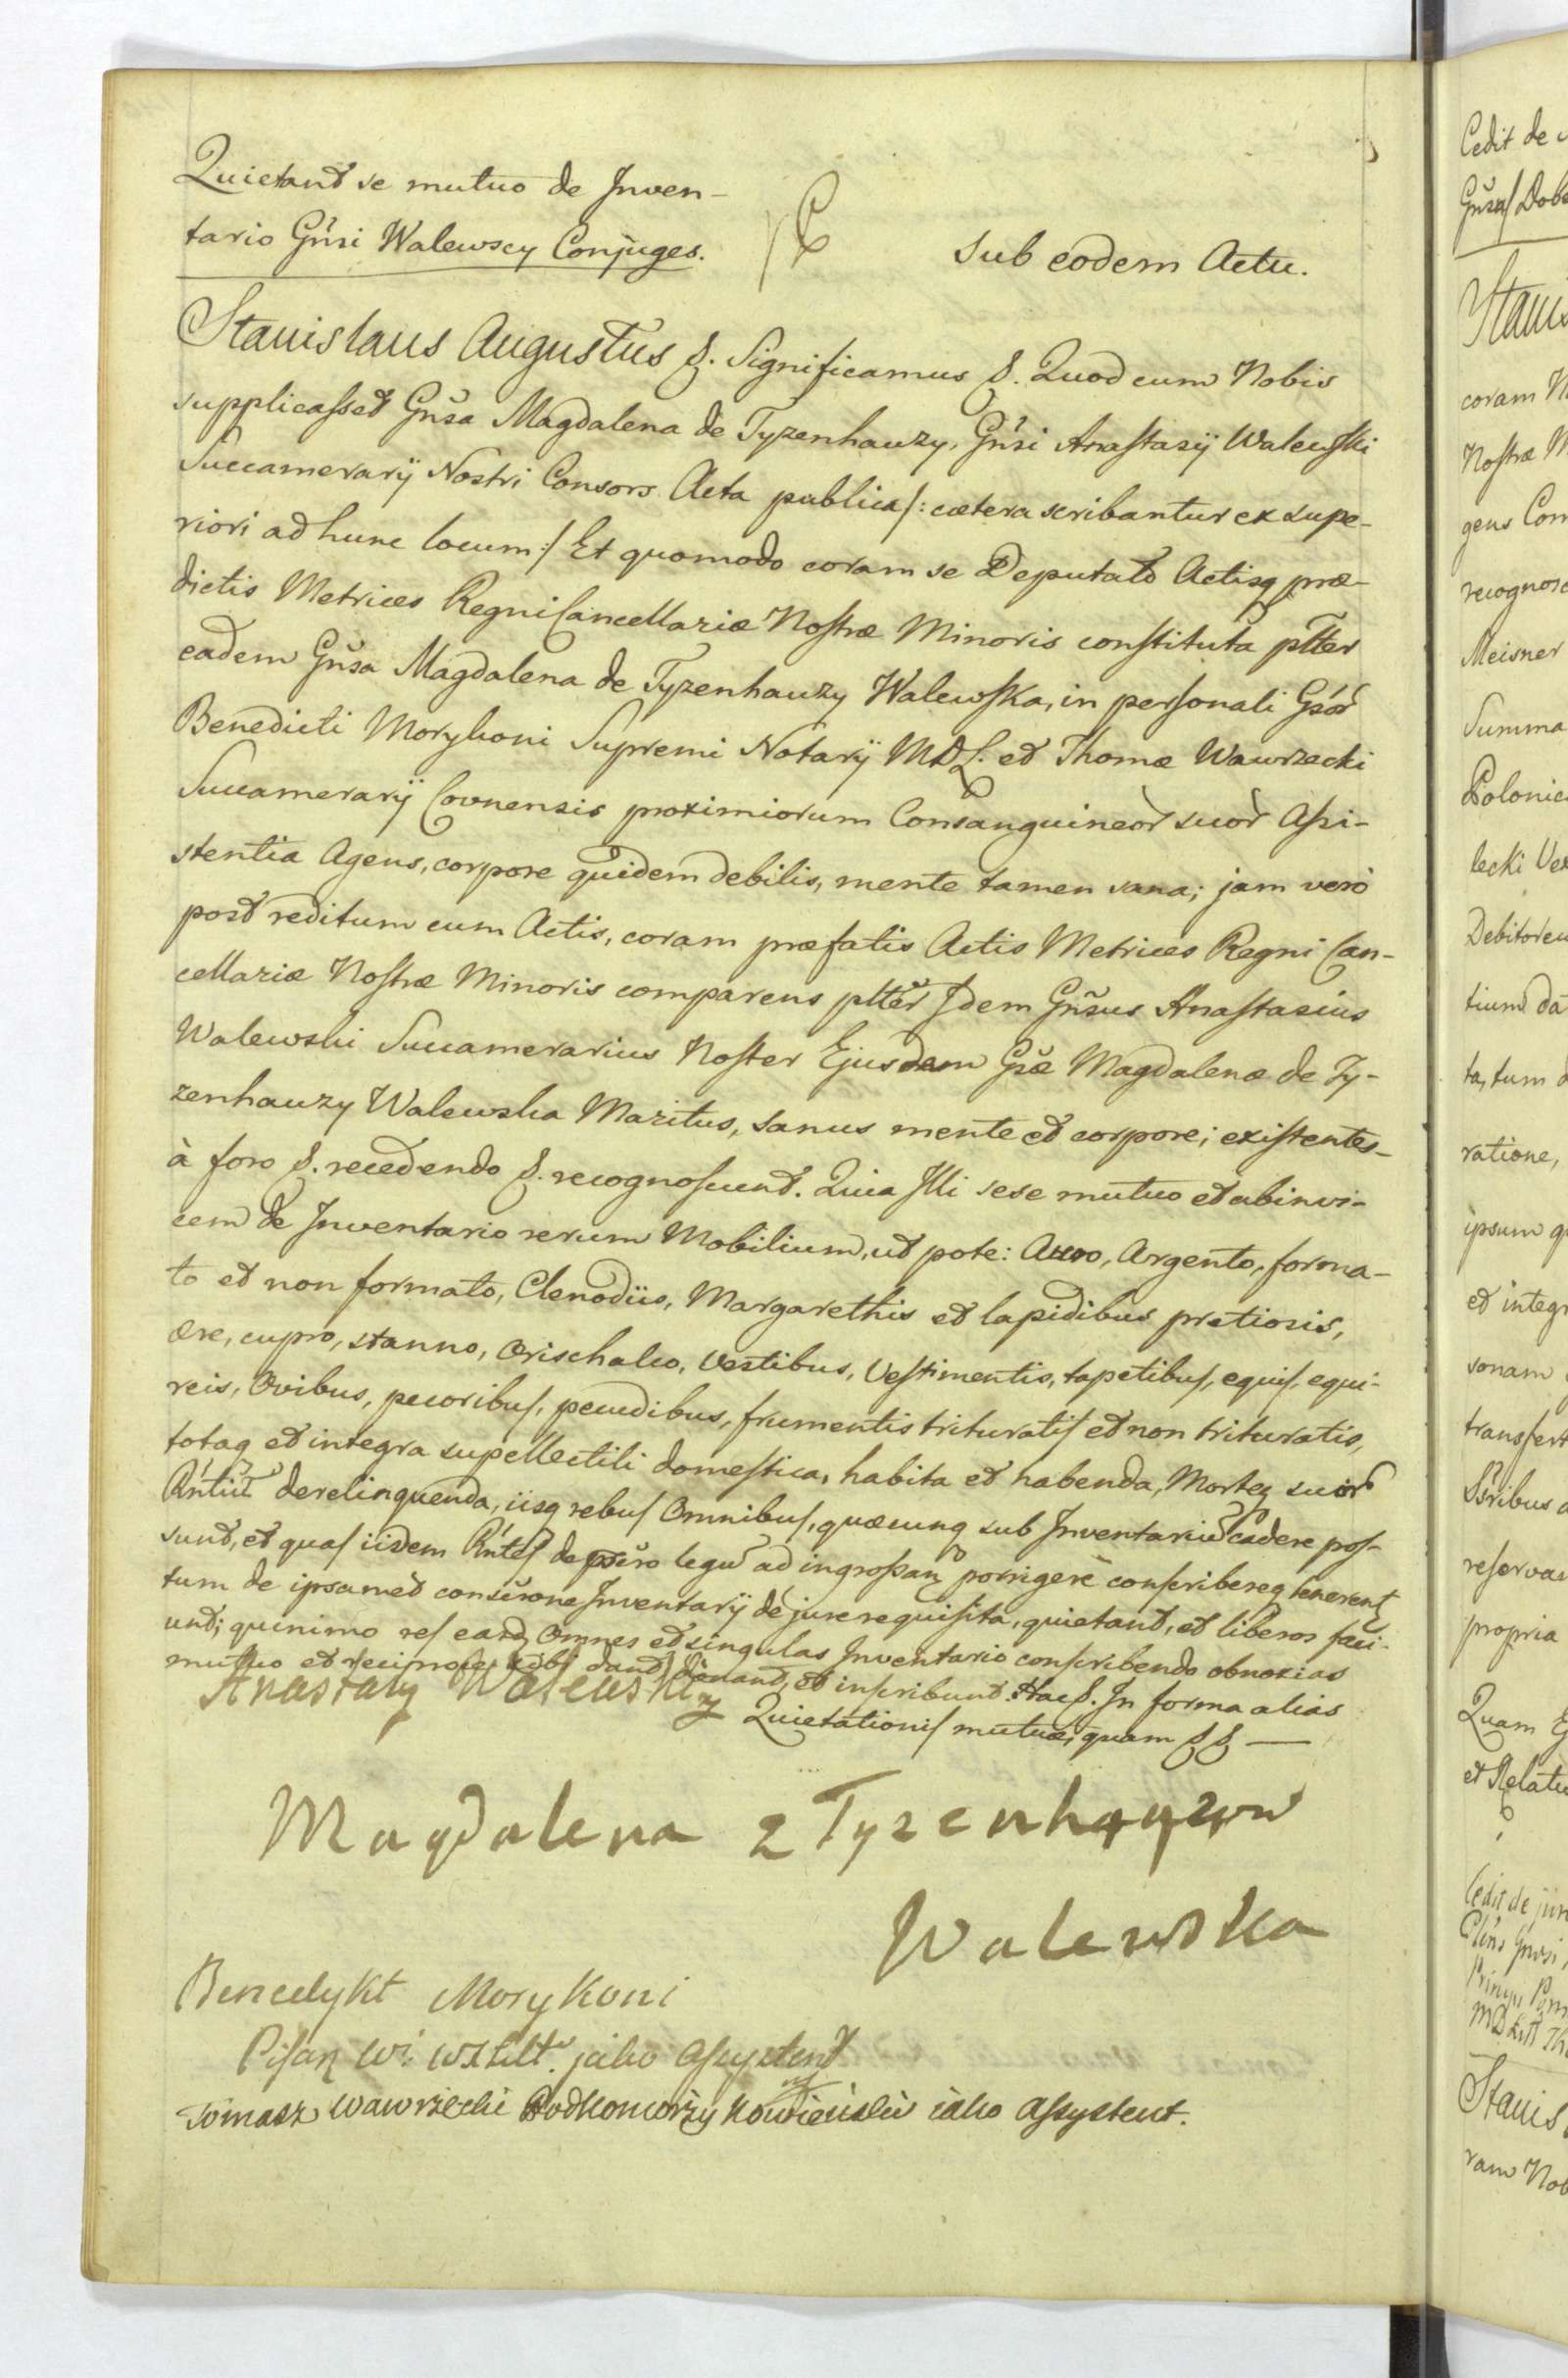 Quietant se mutuo de Inven-
tario Gnsi Walewscy Conjuges.
Sub eodem Actu.
Stanislaus Augustus &. Significamus &. Quod cum Nobis
supplicasset Gnsa Magdalena de Tyzenhauzy, Gnsi Anastasij Walewski
Succamerarij Nostri Consors. Acta publica /: cætera scribantur ex supe-
riori ad hunc locum :/ Et quomodo coram se Deputato Actisq præ-
dictis Metrices Regni Cancellariæ Nostræ Minoris constituta pltter
eadem Gnsa Magdalena de Tyzenhauzy Walewska, in personali Gsor
Benedicti Morykoni Supremi Notarij MDL. et Thomæ Wawrzecki
Succamerarij Covnensis proximiorum Consanguineor suor Assi-
stentia Agens, corpore quidem debilis, mente tamen sana; jam verò
post reditum cum Actis, coram præfatis Actis Metrices Regni Can-
cellariæ Nostræ Minoris comparens pltter Idem Gnsus Anastasius
Walewski Succamerarius Noster Ejusdem Gsæ Magdalenæ de Ty-
zenhauzy Walewska Maritus, sanus mente et corpore; existentes-
à foro &. recedendo &. recognoscunt. Quia Illi sese mutuo et abinvi-
cem de Inventario rerum Mobilium, ut pote: Auro, Argento, forma-
to et non formato, Clenodiis, Margarethis et lapidibus pretiosis,
ære, cupro, stanno, Orischalco, Vestibus, Vestimentis, tapetibus, equis, equi-
reis, Ovibus, pecoribus, pecudibus, frumentis trituratis et non trituratis,
totaq et integra supellectili domestica, habita et habenda, Morteq suor
Rntiu derelinquenda, iisq rebus Omnibus, quæcunq sub Inventariu Cadere pos-
sunt, et quas iidem Rntes de legu ad ingrossanq porrigere conscribereq tenerent
tum de ipsamet conscrone Inventarij de jure requisita, quietant, et liberos faci-
unt; quinimo res easdq Omnes et singulas Inventario conscribendo obnoxias
mutuo et reciproce sibi dant donant, et inscribunt. Hac &. In forma alias
Anastazy Walewski
Quietationis mutuæ, quam &&
Magdalena z Tyzenhauzow
Walewska
Benedykt Morykoni
Pisarz Wi. WXLitt. jako Assystent
Tomasz Wawrzecki Podkomorzy Kowienski iako Assystent.
Cedit de
Gnsa Dob
Stanis
coram N
Nostræ M
gens Con
recognosc
Meisner
Summa
Polonic
lecki Vex
Debitorem
tium da
ta, tum
ratione,
ipsum q
et integr
sonam
transfert
Ssribus
reservat
propria
Quam
et Relatu
Cedit de jur
Stanis
ram Nob